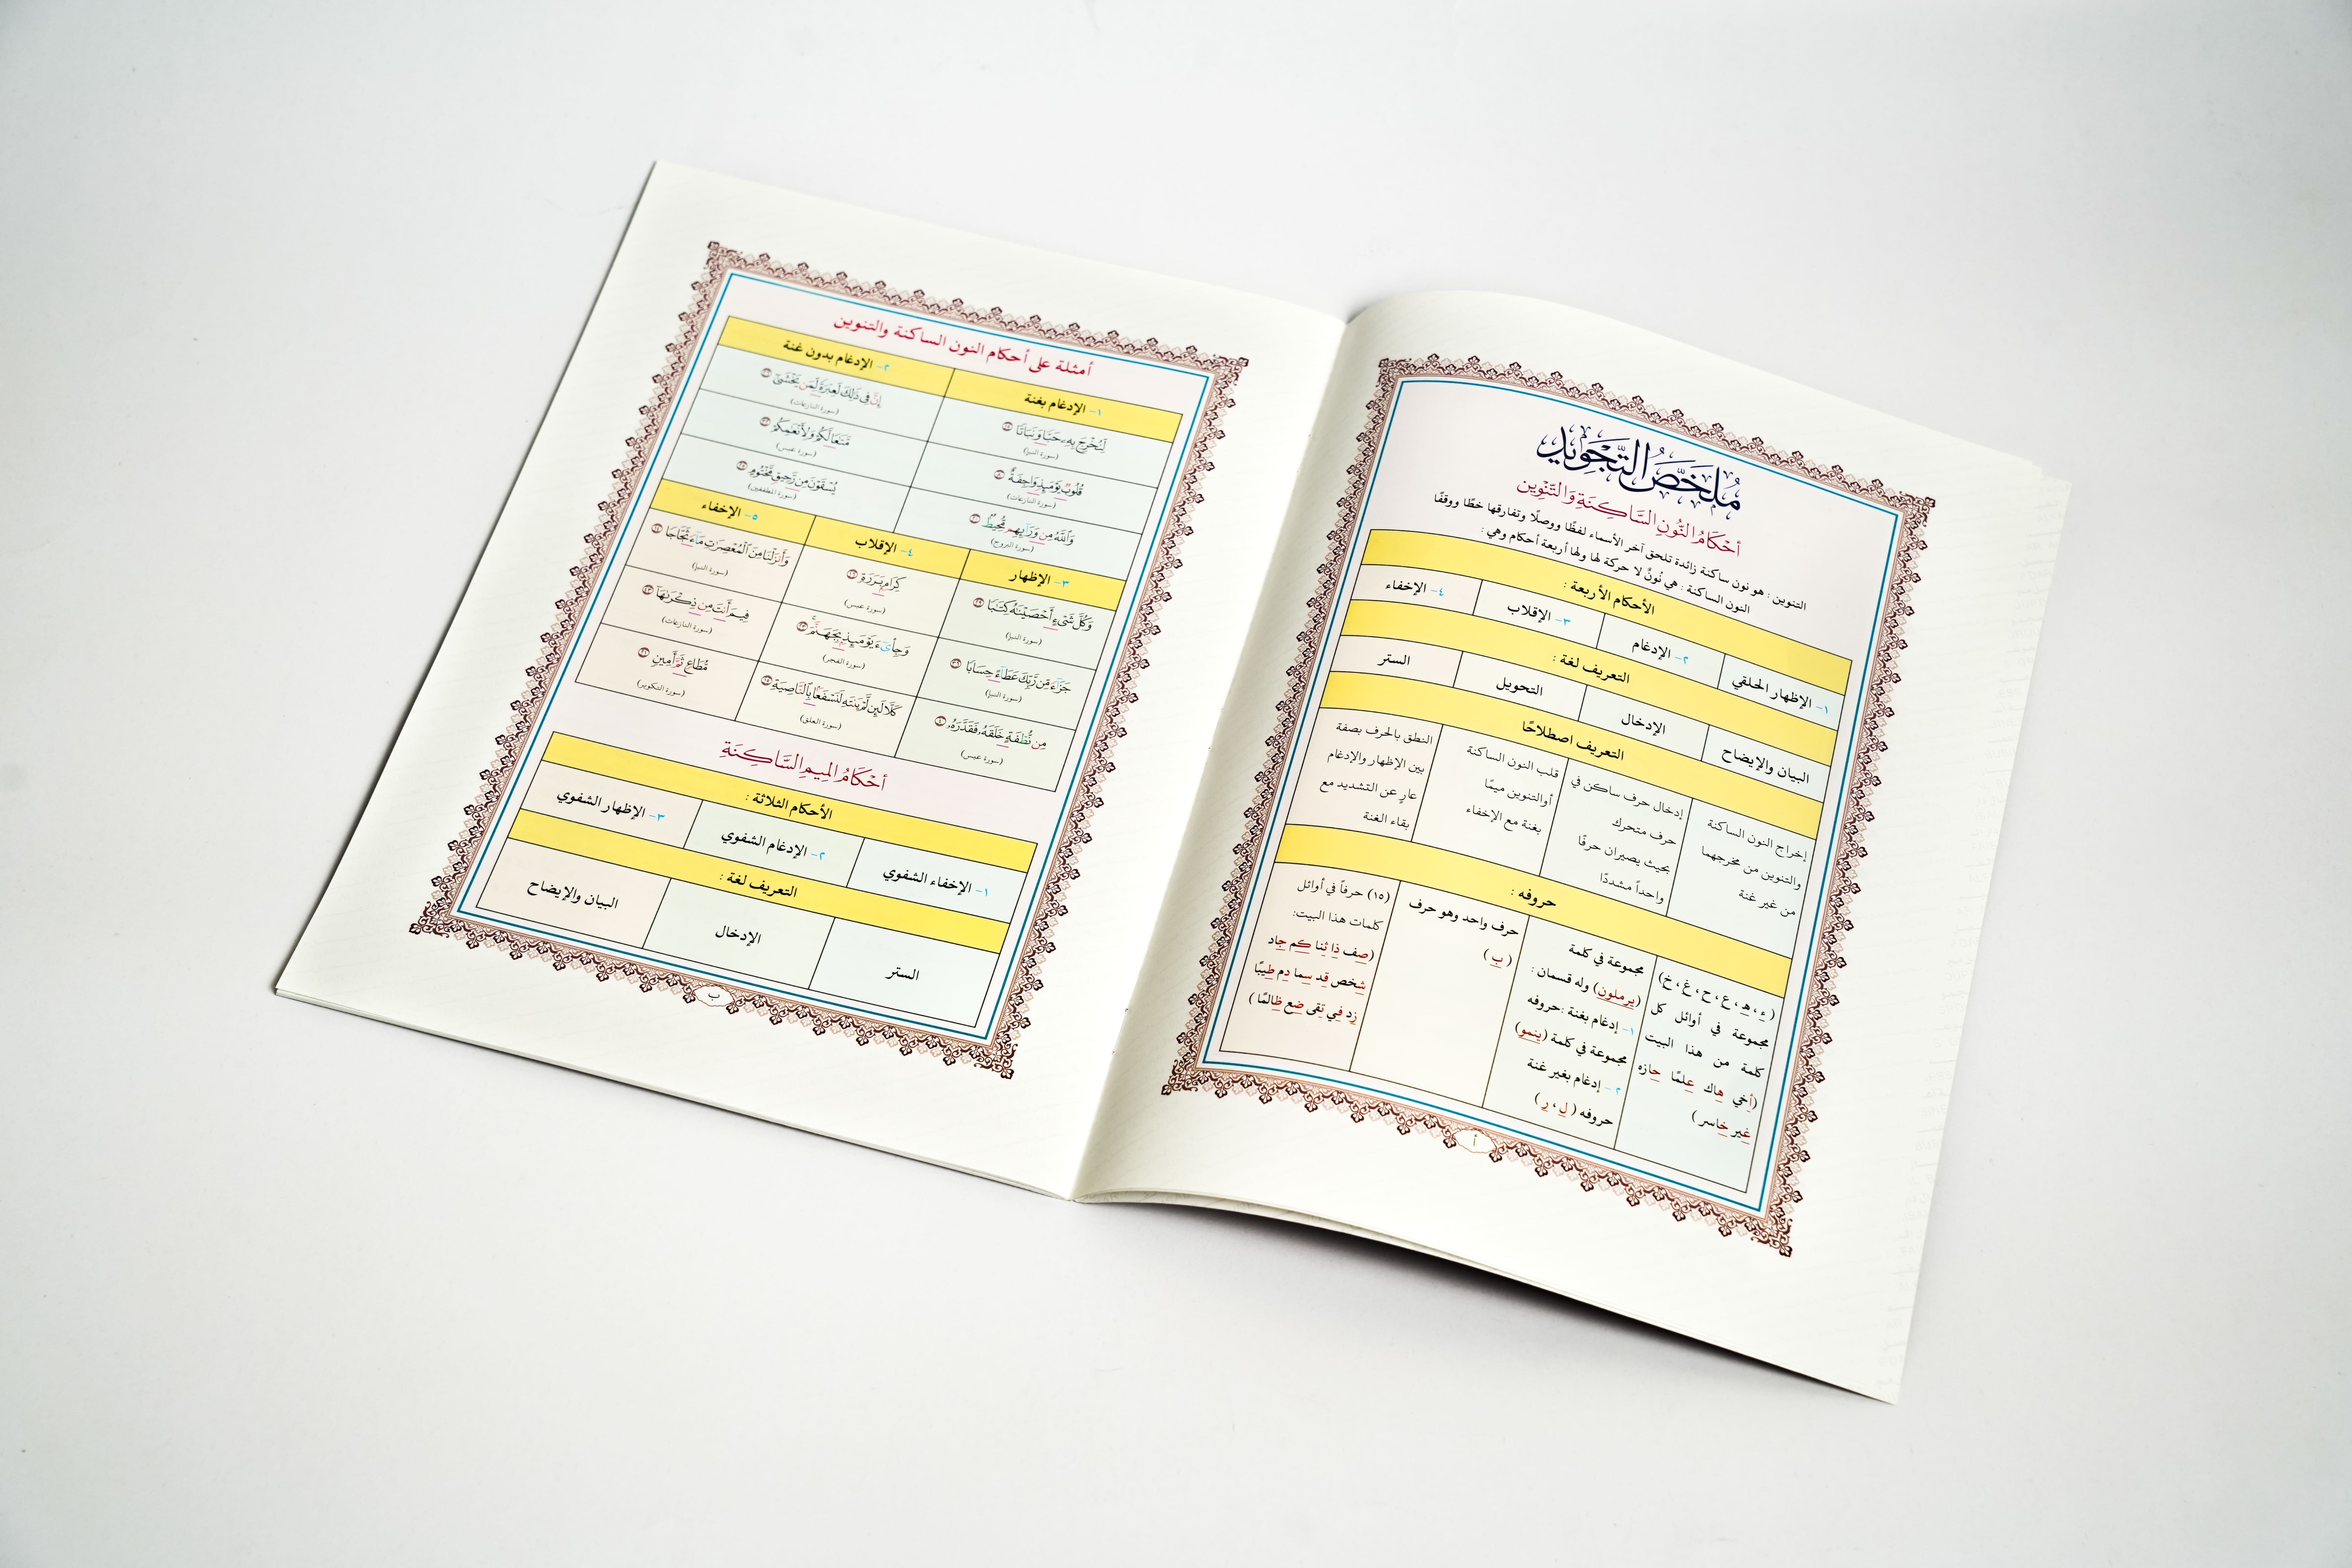 مُلَخَّصُ التَّجْوِيدِ
أَحْكَامُ النُّونِ السَّاكِنَةِ وَالتَّنْوِينِ
التنوين : هو نون ساكنة زائدة تلحق آخر الأسماء لفظًا ووصلًا وتفارقها خطًا ووقفًا
النون الساكنة : هي نُونٌ لا حركة لها ولها أربعة أحكام وهي :
الأحكام الأربعة :
١- الإظهار الحلقي
٢- الإدغام
٣- الإقلاب
٤- الإخفاء
التعريف لغة :
البيان والإيضاح
الإدخال
التحويل
الستر
التعريف اصطلاحًا
إخراج النون الساكنة
والتنوين من مخرجهما
من غير غنة
إدخال حرف ساكن في
حرف متحرك
بحيث يصيران حرفًا
واحداً مشددًا
قلب النون الساكنة
أوالتنوين ميمًا
بغنة مع الإخفاء
النطق بالحرف بصفة
بين الإظهار والإدغام
عارٍ عن التشديد مع
بقاء الغنة
حروفه :
( ء ، هـ ، ع ، ح ، غ ، خ )
مجموعة في أوائل كل
كلمة من هذا البيت
(أخي هاك علمًا حازه
غير خاسر )
مجموعة في كلمة
(يرملون) وله قسمان :
١- إدغام بغنة :حروفه
مجموعة في كلمة (ينمو)
٢- إدغام بغير غنة
حروفه ( ل ، ر )
حرف واحد وهو حرف
( ب )
(١٥) حرفاً في أوائل
كلمات هذا البيت:
(صف ذا ثنا كم جاد
شخص قد سما دم طيبًا
زد في تقى ضع ظالمًا )
أ
أمثلة على أحكام النون الساكنة والتنوين
١- الإدغام بغنة
٢- الإدغام بدون غنة
لِّنُخْرِجَ بِهِۦ حَبًّا وَنَبَاتًا ١٥
(سورة النبإ)
إِنَّ فِى ذَٰلِكَ لَعِبْرَةً لِّمَن يَخْشَىٰٓ ٢٦
(سورة النازعات)
قُلُوبٌ يَوْمَئِذٍ وَاجِفَةٌ ٨
(سورة النازعات)
مَّتَٰعًا لَّكُمْ وَلِأَنْعَٰمِكُمْ ٣٢
(سورة عبس)
وَٱللَّهُ مِن وَرَآئِهِم مُّحِيطٌۢ ٢٠
(سورة البروج)
يُسْقَوْنَ مِن رَّحِيقٍ مَّخْتُومٍ ٢٥
(سورة المطففين)
٣- الإظهار
٤- الإقلاب
٥- الإخفاء
وَكُلَّ شَىْءٍ أَحْصَيْنَٰهُ كِتَٰبًا ٢٩
(سورة النبإ)
كِرَامٍۭ بَرَرَةٍ ١٦
(سورة عبس)
وَأَنزَلْنَا مِنَ ٱلْمُعْصِرَٰتِ مَآءً ثَجَّاجًا ١٤
(سورة النبإ)
جَزَآءً مِّن رَّبِّكَ عَطَآءً حِسَابًا ٣٦
(سورة النبإ)
وَجِا۟ىٓءَ يَوْمَئِذٍۭ بِجَهَنَّمَ ۚ ٢٣
(سورة الفجر)
فِيمَ أَنتَ مِن ذِكْرَىٰهَآ ٤٣
(سورة النازعات)
مِن نُّطْفَةٍ خَلَقَهُۥ فَقَدَّرَهُۥ ١٩
(سورة عبس)
كَلَّا لَئِن لَّمْ يَنتَهِ لَنَسْفَعًۢا بِٱلنَّاصِيَةِ ١٥
(سورة العلق)
مُّطَاعٍ ثَمَّ أَمِينٍ ٢١
(سورة التكوير)
أَحْكَامُ المِيمِ السَّاكِنَةِ
الأحكام الثلاثة :
١- الإخفاء الشفوي
٢- الإدغام الشفوي
٣- الإظهار الشفوي
التعريف لغة :
الستر
الإدخال
البيان والإيضاح
ب